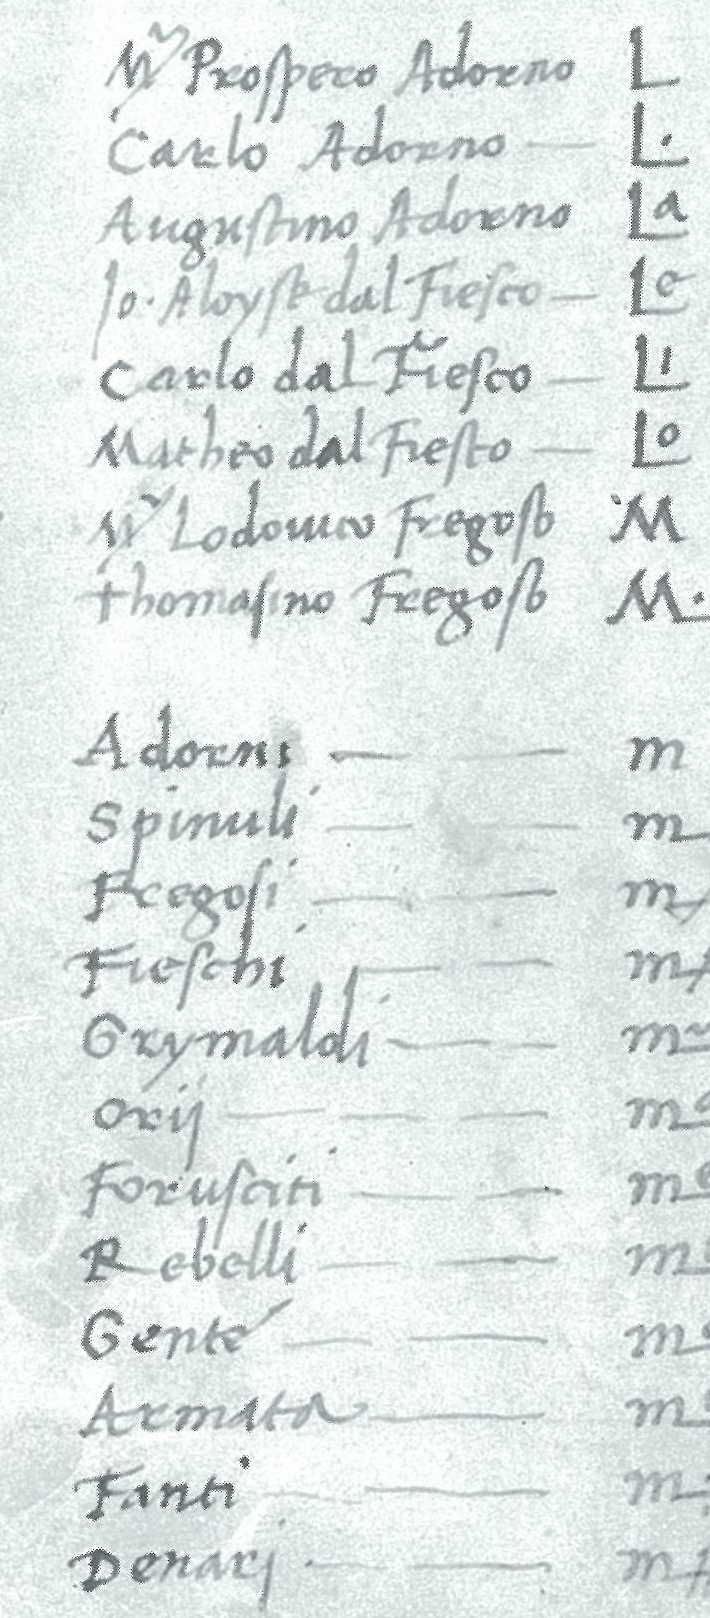 Mr Prospero Adorno L
Carlo Adorno — L.
Augustino Adorno La
Jo. Aloysio dal Fiesco — Le
Carlo dal Fiesco — Li
Matheo dal Fiesco — Lo
Mr Lodovico Fregoso M
Thomasino Fregoso M.
Adorni — — m
Spinuli — — m
Fregosi — — m
Fieschi — — m
Grymaldi — — m
Orij — — — m
Forusciti — — m
Rebelli — — m
Gente — — m
Armata — m
Fanti — — m
Denarj — — m